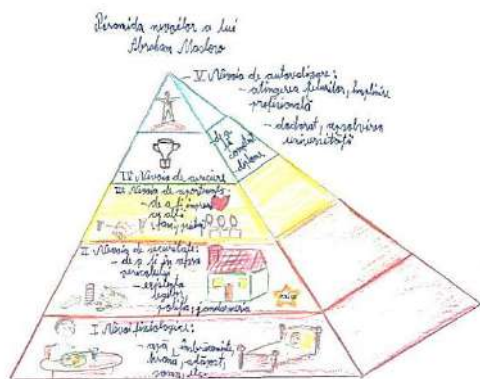 Piramida nevoilor a lui
Abraham Maslow
V. Nevoia de autorealizare:
- atingerea țelurilor, împlinire
profesională
- doctorat, absolvirea
universității
IV. Nevoia de succes
- de a
III. Nevoia de apartenență:
- de a fi împreună
cu alții
II. Nevoia de securitate:
- de a fi în afara
pericolului
- existența
legilor
poliția, jandarmeria
I. Nevoi fiziologice:
- apă, îmbrăcăminte,
hrană, adăpost,
somn, etc.